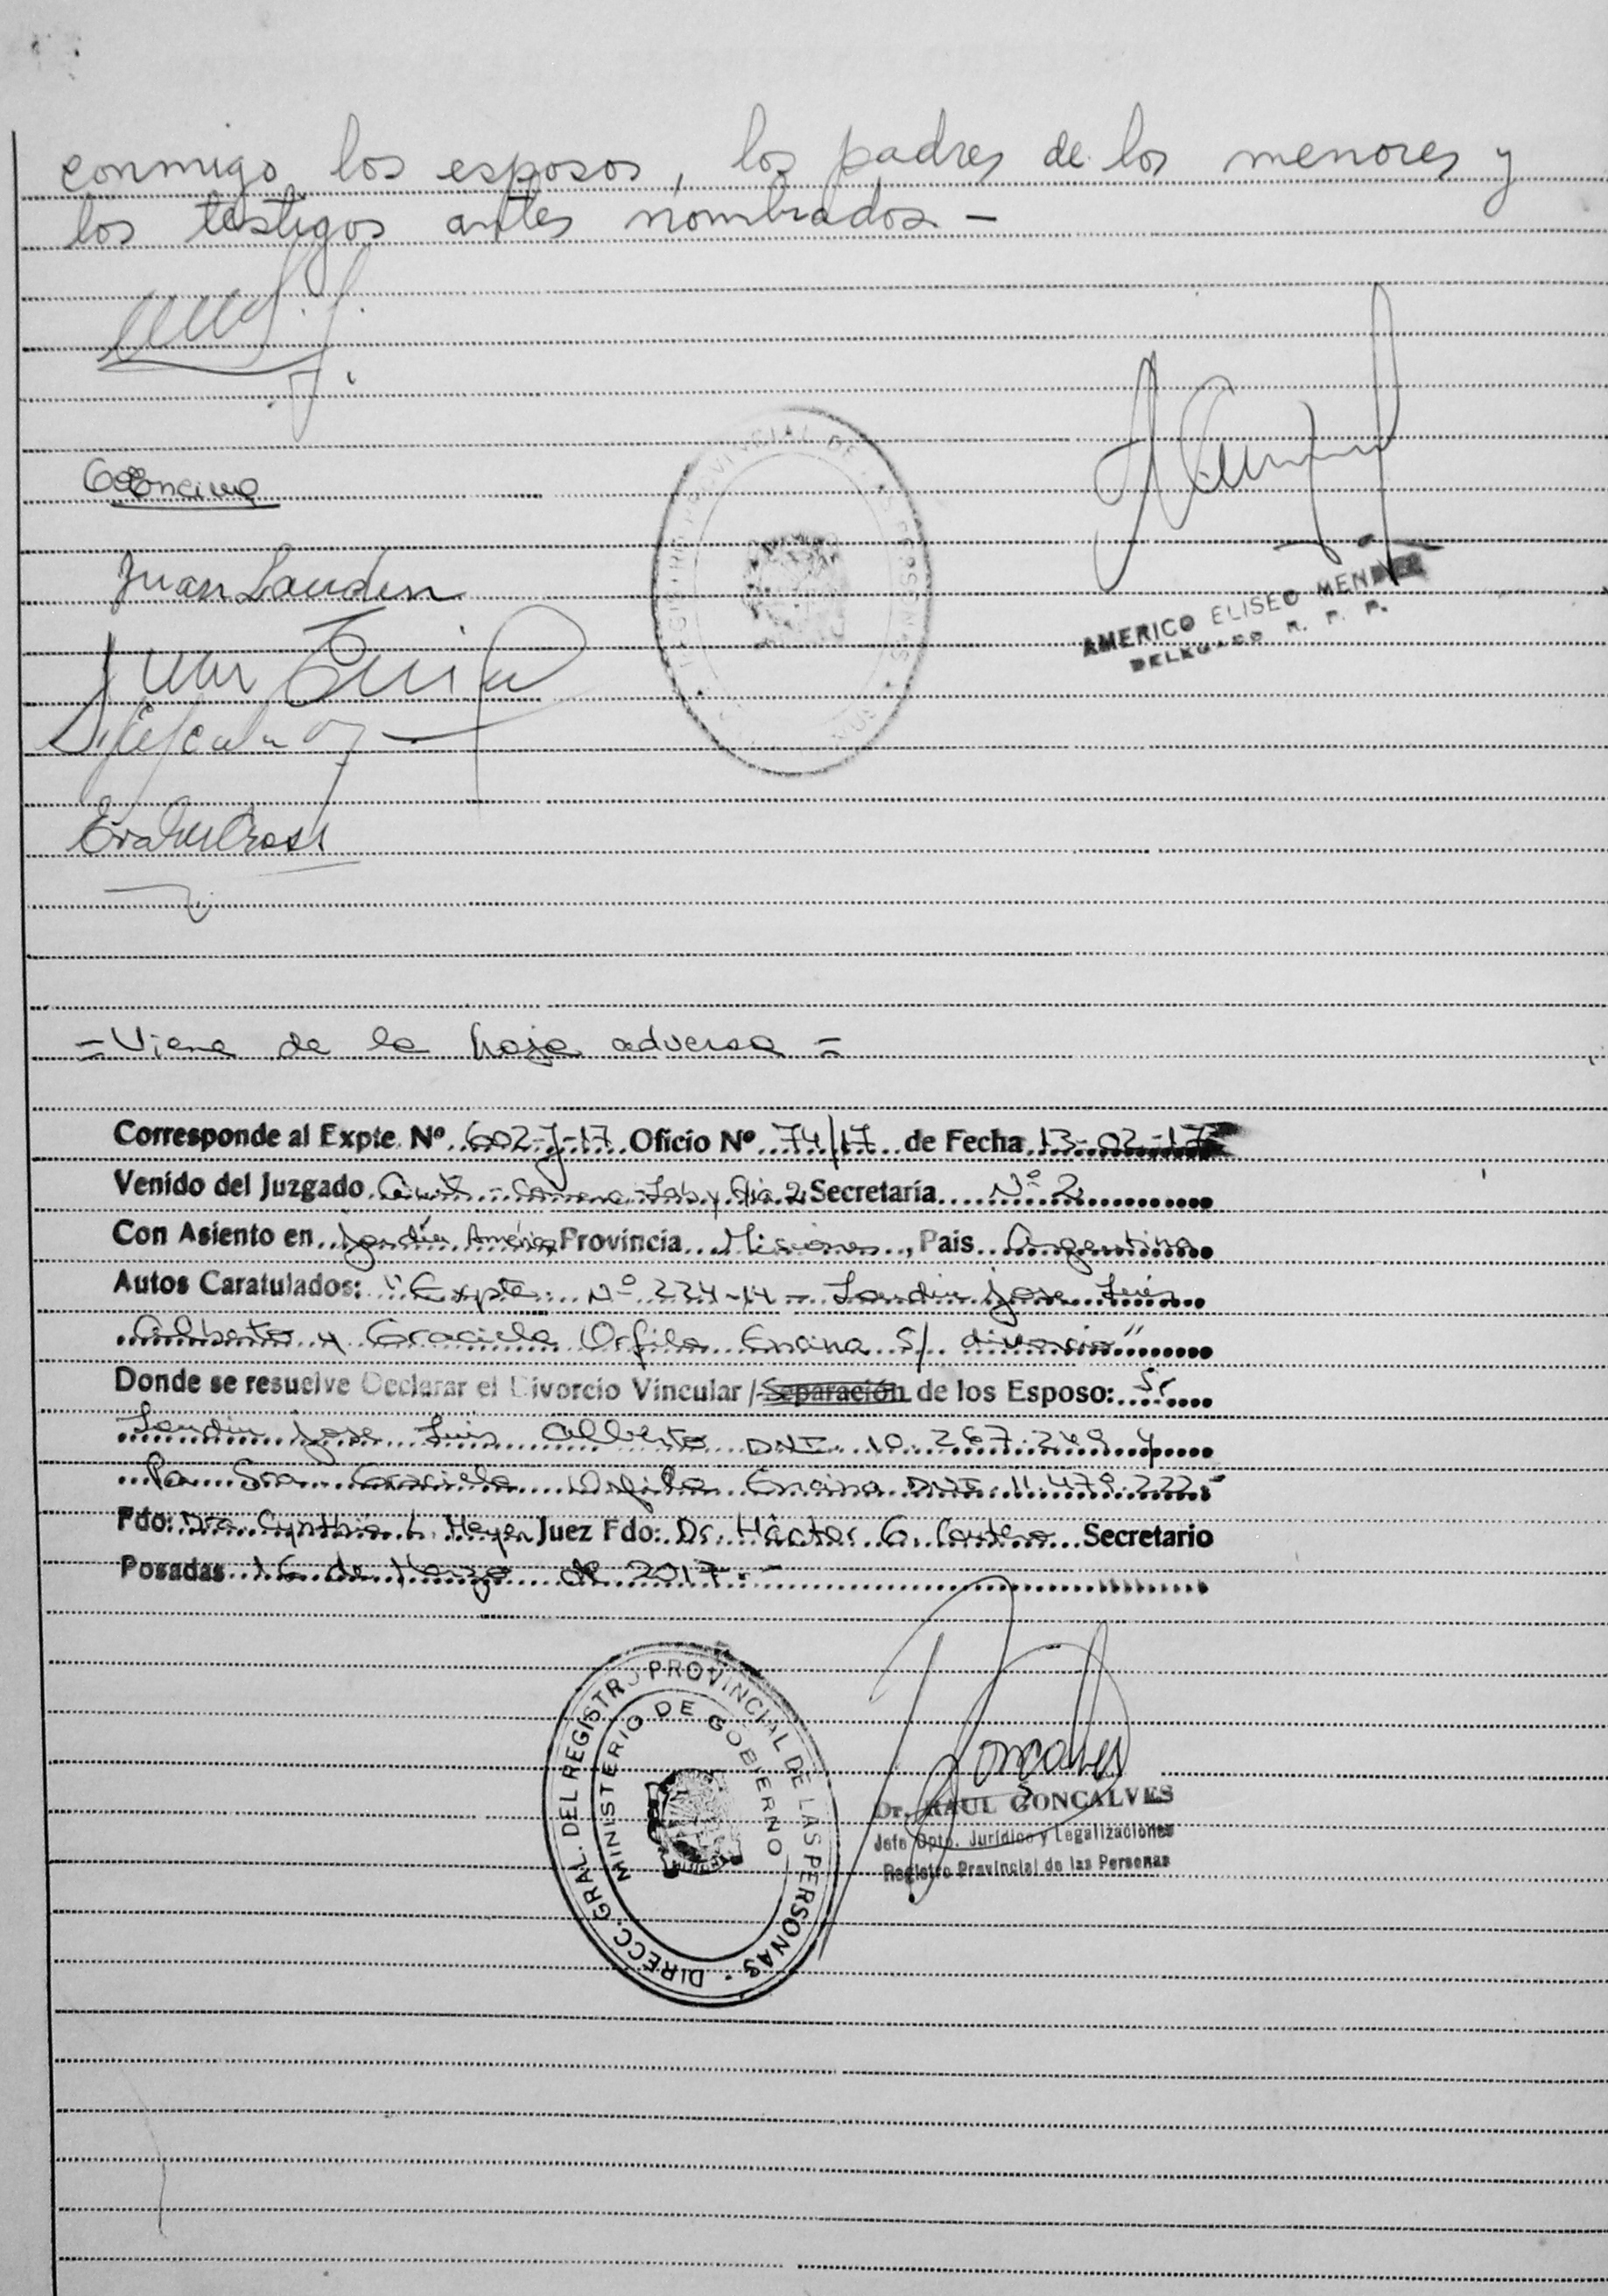 conmigo los esposos, los padres de los menores y
los testigos antes nombrados -
Juan Landin
AMERICO ELISEO MENDEZ
DELEGADO R. P. P.
= Viene de la hoja adversa =
Corresponde al Expte. Nº 602-J-17 Oficio Nº 74/17 de Fecha 13-02-17
Venido del Juzgado Civil - Comerc - Lab y Flia 2 Secretaría Nº 2
Con Asiento en Jardín América Provincia Misiones, Pais Argentina
Autos Caratulados: "Expte. Nº 224-14 - Landin Jose Luis
Alberto y Graciela Orfila Encina S/ divorcio"
Donde se resuelve Declarar el Divorcio Vincular / Separación de los Esposo: Sr
Landin Jose Luis Alberto DNI 10.267.249 y
la Sra Graciela Orfila Encina DNI 11.479.222.-
Fdo: Dra. Cynthia L. Heyer Juez Fdo: Dr. Hácter G. Secretario
Posadas 16 de Marzo de 2017.-
DIRECC. GRAL. DEL REGISTRO PROVINCIAL DE LAS PERSONAS
MINISTERIO DE GOBIERNO
Dr. RAUL GONCALVES
Jefe Dpto. Jurídico y Legalizaciones
Registro Provincial de las Personas